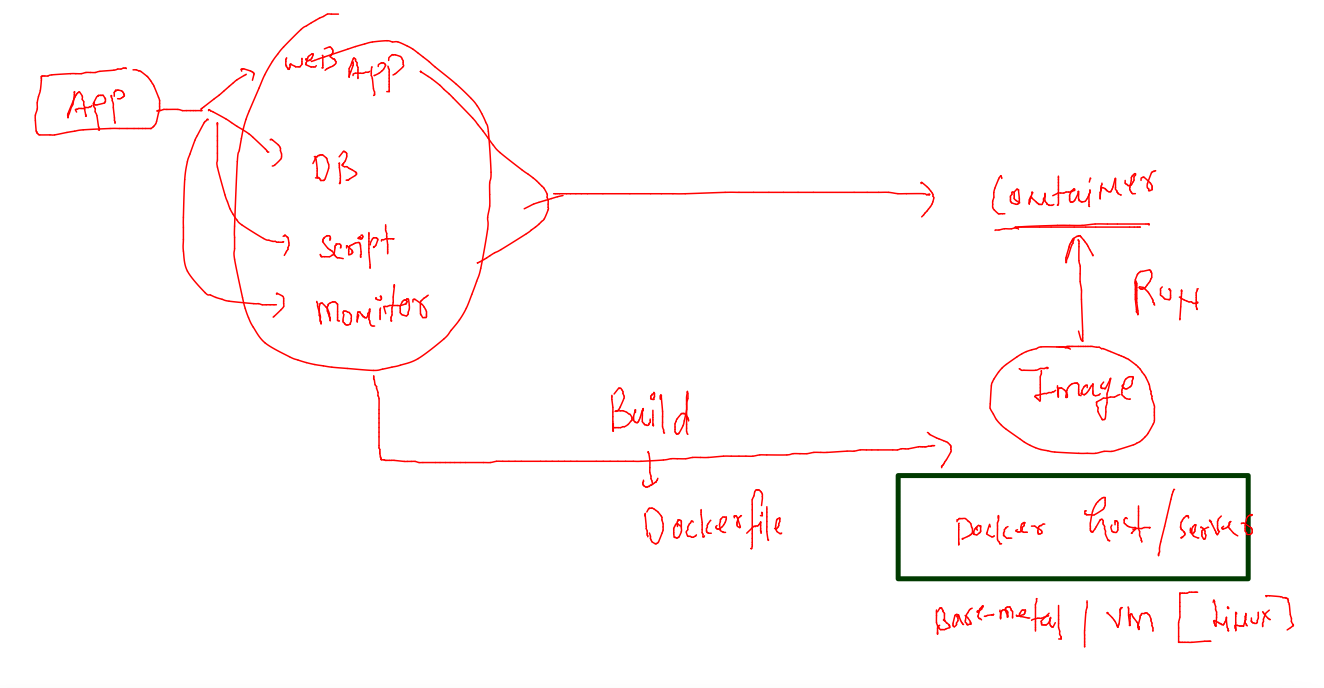 App
WEB App
DB
Script
Monitor
Container
Run
Image
Build
Dockerfile
Docker host/server
Bare-metal | VM [Linux]